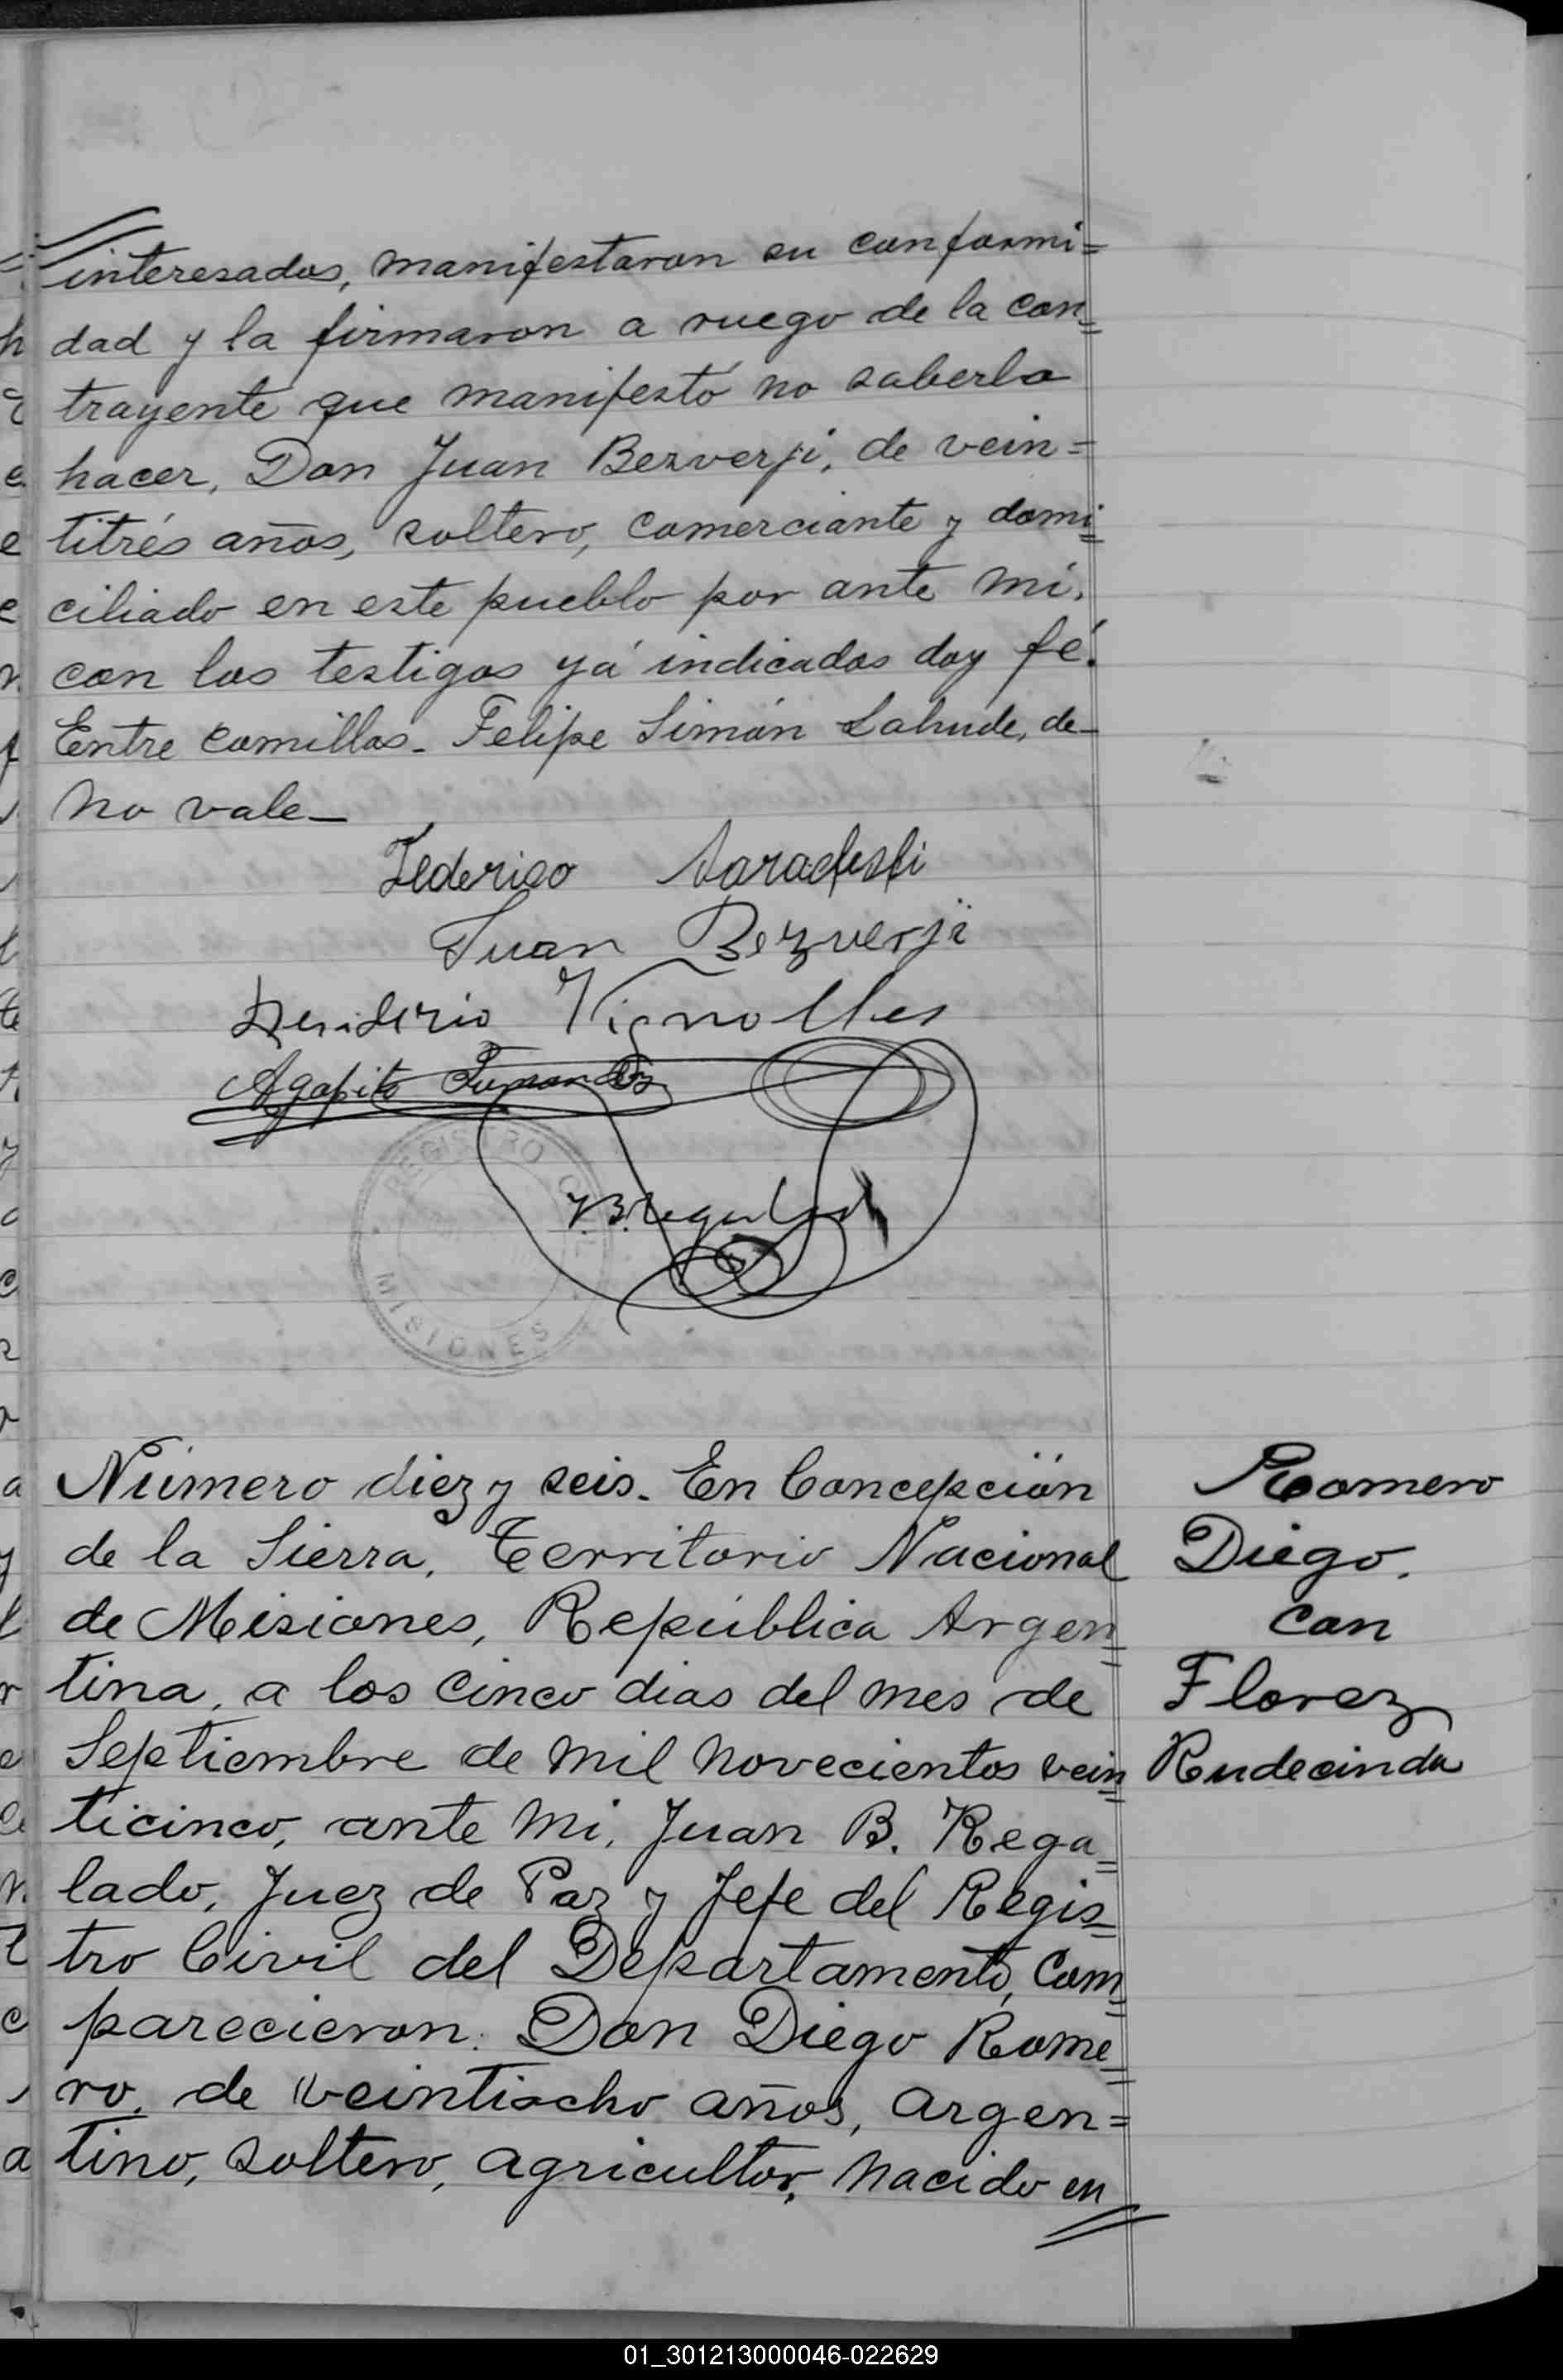 interesados, manifestaron su conformi=
dad y la firmaron a ruego de la con=
trayente que manifestó no saberlo
hacer, Don Juan Bezverji, de vein=
titrés años, soltero, comerciante y domi=
ciliado en este pueblo por ante mi,
con los testigos yá indicados doy fé.
Entre comillas - Felipe Simón Lahude, de -
no vale -
Federico
Juan Bezverji
Desiderio Vignolles
Agapito
REGISTRO CIVIL
MISIONES
Número diez y seis. En Concepción
de la Sierra, Territorio Nacional
de Misiones, República Argen=
tina, a los cinco dias del mes de
Septiembre de mil novecientos vein=
ticinco, ante mi, Juan B. Rega=
lado, Juez de Paz y Jefe del Regis=
tro Civil del Departamento, Com=
parecieron: Don Diego Rome=
ro, de veintiocho años, argen=
tino, soltero, agricultor, nacido en
Romero
Diego.
con
Florez
Rudecinda
01_301213000046-022629